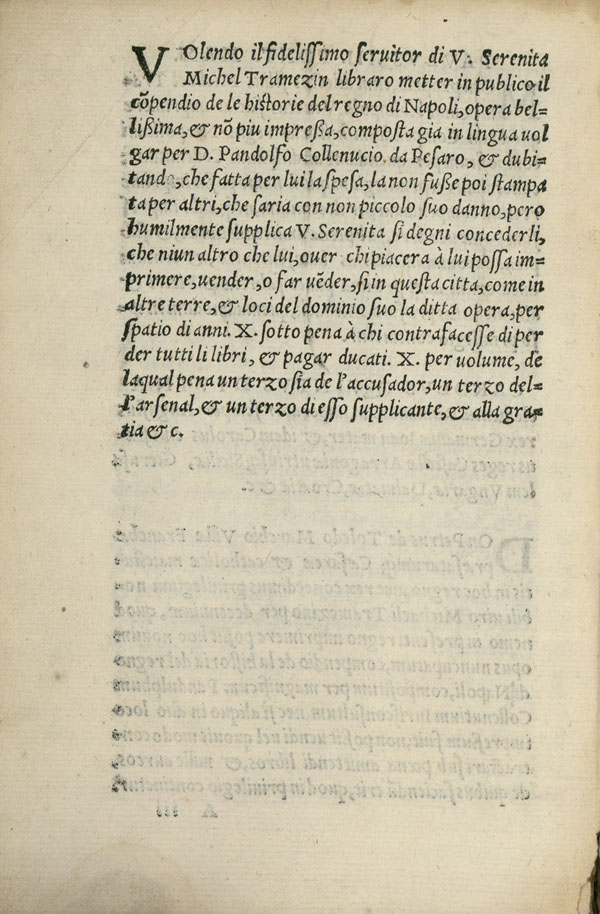 VOlendo il fidelissimo seruitor di V. Serenita
Michel Tramezin libraro metter in publico il
cõpendio de le historie del regno di Napoli, opera bel=
lißima, & nõ piu impreßa, composta gia in lingua uol
gar per D. Pandolfo Collenucio da Pesaro, & dubi=
tando, che fatta per lui la spesa, la non fuße poi stampa
ta per altri, che saria con non piccolo suo danno, pero
humilmente supplica V. Serenita si degni concederli,
che niun altro che lui, ouer chi piacera à lui possa im=
primere, uender, o far uẽder, si in questa citta, come in
altre terre, & loci del dominio suo la ditta opera, per
spatio di anni. X. sotto pena à chi contrafacesse di per
der tutti li libri, & pagar ducati. X. per volume, de
laqual pena un terzo sia de l'accusador, un terzo del=
l'arsenal, & un terzo di esso supplicante, & alla gra=
tia & c.